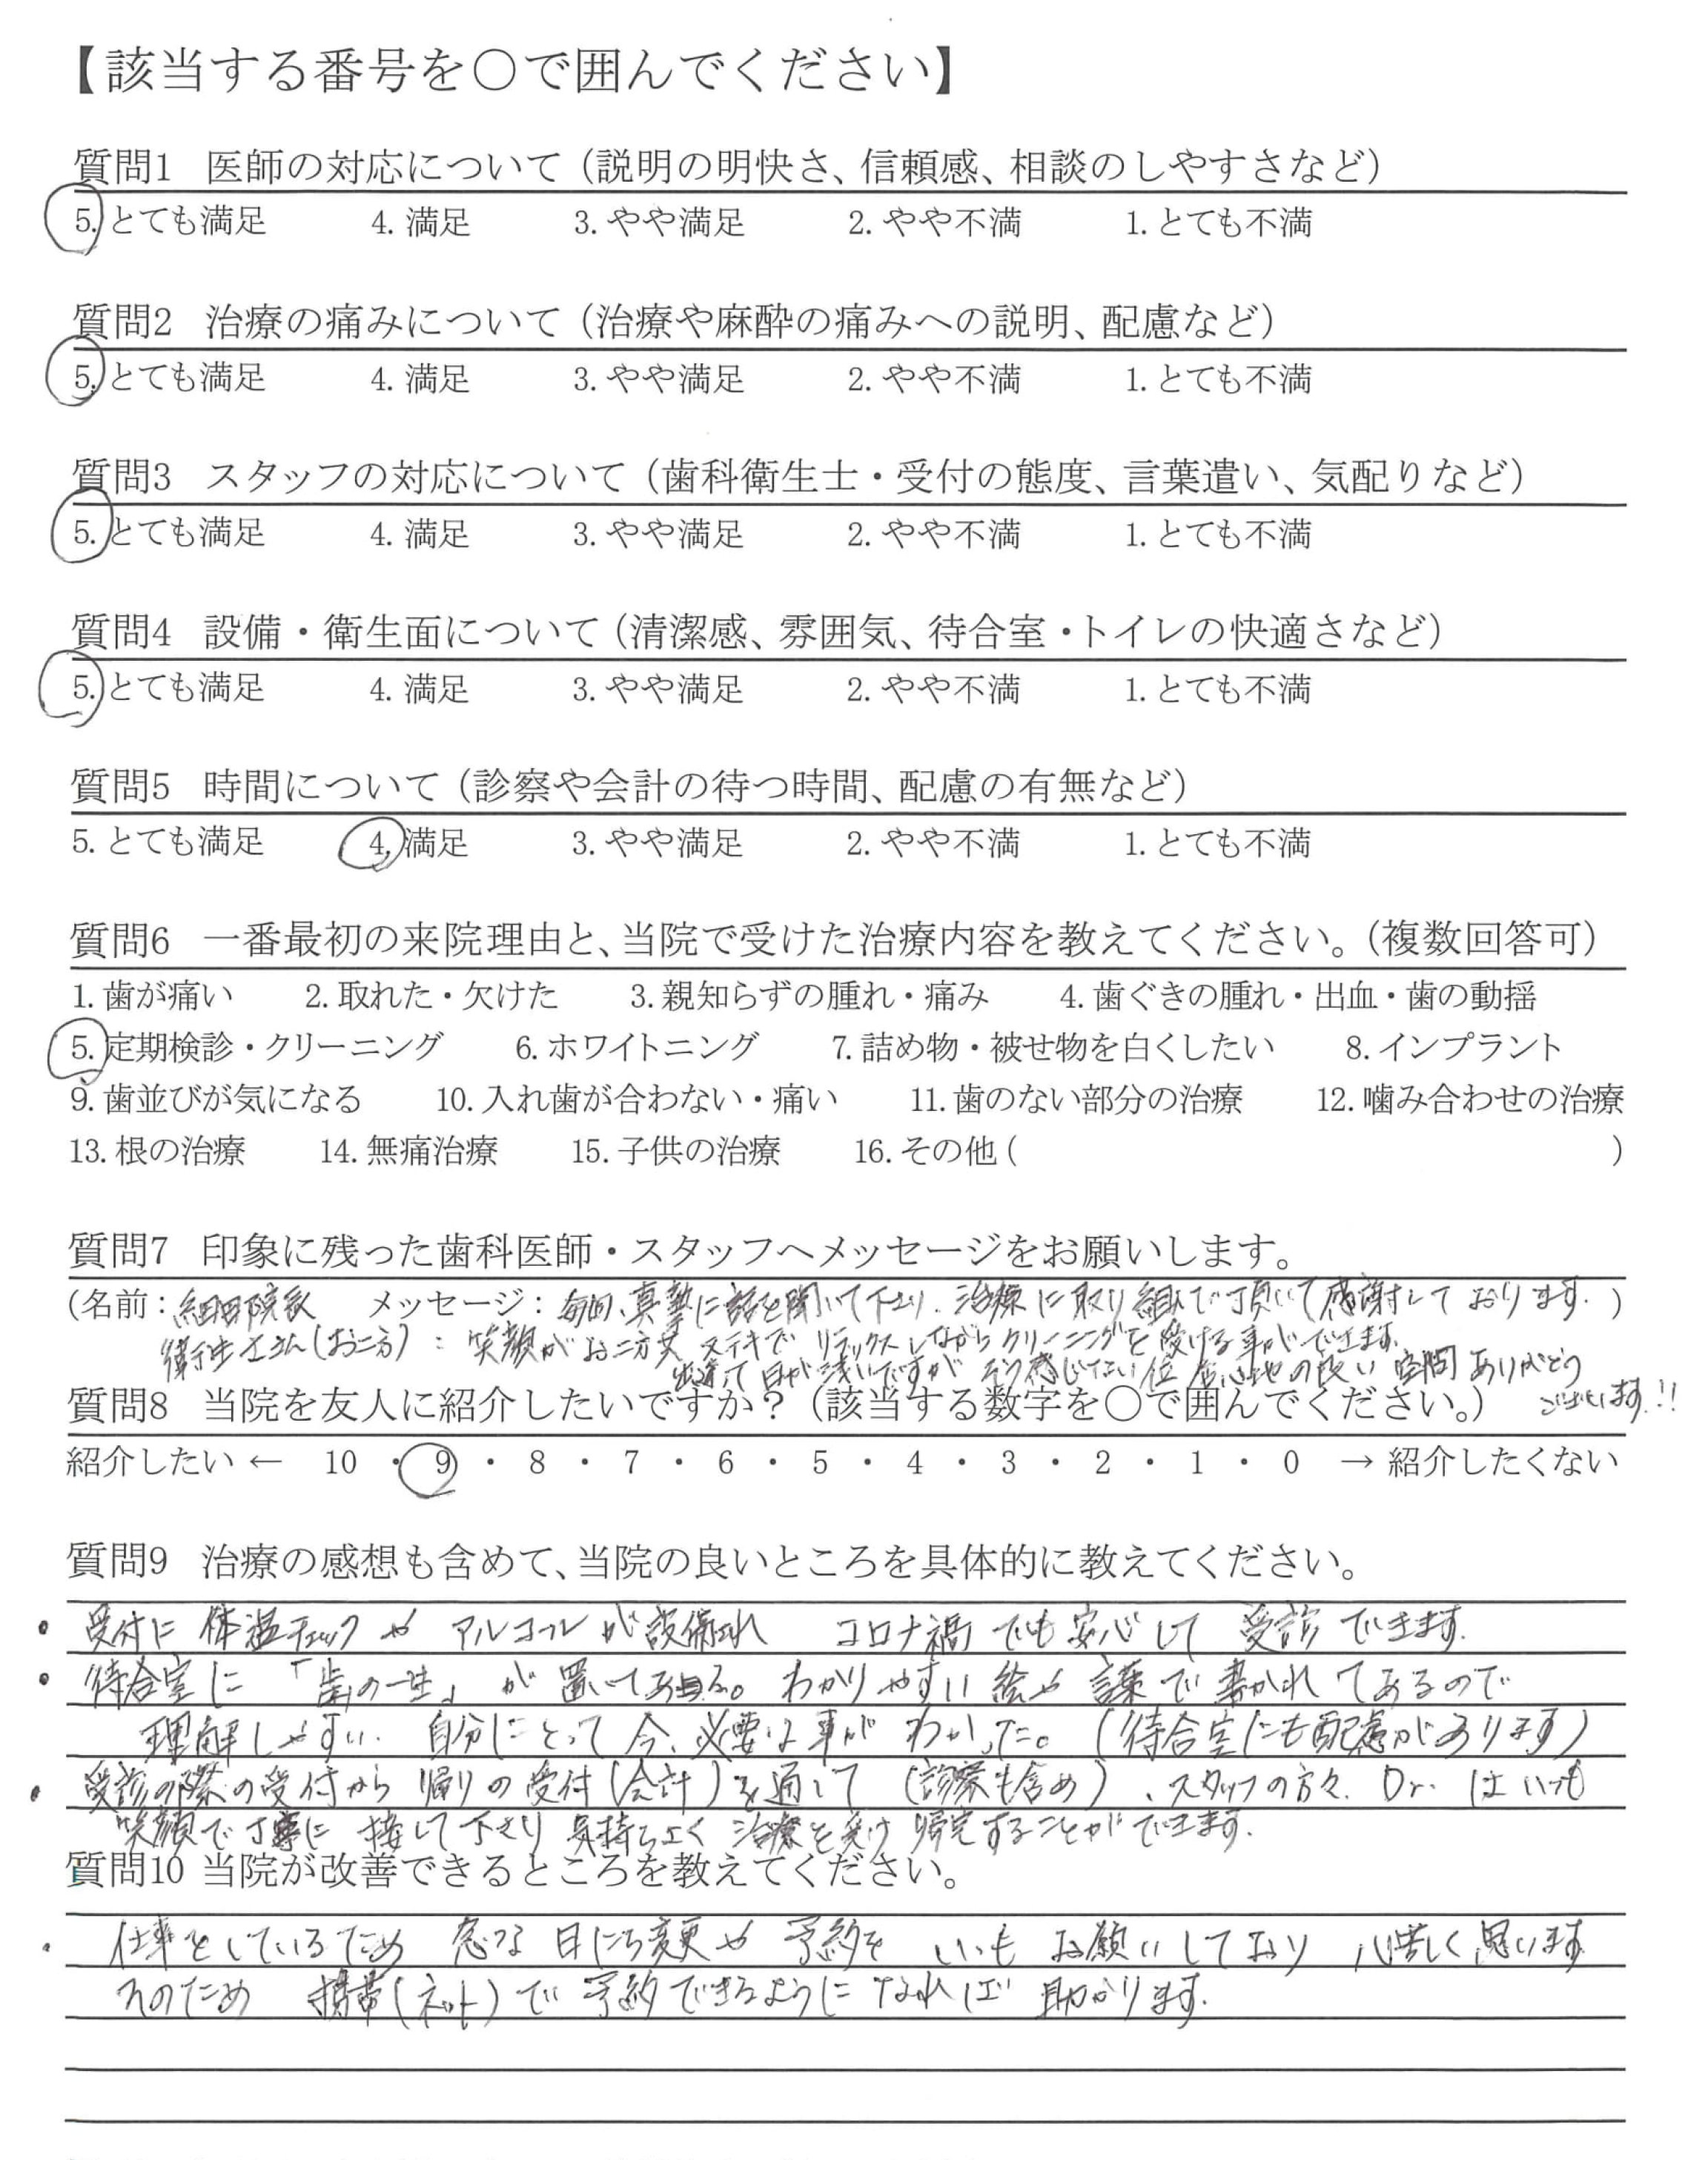 【該当する番号を○で囲んでください】
質問1 医師の対応について（説明の明快さ、信頼感、相談のしやすさなど）
5. とても満足 4. 満足 3. やや満足 2. やや不満 1. とても不満
質問2 治療の痛みについて（治療や麻酔の痛みへの説明、配慮など）
5. とても満足 4. 満足 3. やや満足 2. やや不満 1. とても不満
質問3 スタッフの対応について（歯科衛生士・受付の態度、言葉遣い、気配りなど）
5. とても満足 4. 満足 3. やや満足 2. やや不満 1. とても不満
質問4 設備・衛生面について（清潔感、雰囲気、待合室・トイレの快適さなど）
5. とても満足 4. 満足 3. やや満足 2. やや不満 1. とても不満
質問5 時間について（診察や会計の待つ時間、配慮の有無など）
5. とても満足 4. 満足 3. やや満足 2. やや不満 1. とても不満
質問6 一番最初の来院理由と、当院で受けた治療内容を教えてください。（複数回答可）
1. 歯が痛い 2. 取れた・欠けた 3. 親知らずの腫れ・痛み 4. 歯ぐきの腫れ・出血・歯の動揺
5. 定期検診・クリーニング 6. ホワイトニング 7. 詰め物・被せ物を白くしたい 8. インプラント
9. 歯並びが気になる 10. 入れ歯が合わない・痛い 11. 歯のない部分の治療 12. 噛み合わせの治療
13. 根の治療 14. 無痛治療 15. 子供の治療 16. その他 ( )
質問7 印象に残った歯科医師・スタッフへメッセージをお願いします。
（名前：細田院長 メッセージ：毎回、真摯に話を聞いて下さり、治療に取り組んで頂いて感謝しております。）
衛生士さん（お二方）：笑顔がお二方共 ステキで リラックスしながらクリーニングを受ける事ができます。
出逢って日が浅いですが そう感じない位 居心地の良い空間 ありがとう
ございます!!
質問8 当院を友人に紹介したいですか？（該当する数字を○で囲んでください。）
紹介したい ← 10 ・ 9 ・ 8 ・ 7 ・ 6 ・ 5 ・ 4 ・ 3 ・ 2 ・ 1 ・ 0 → 紹介したくない
質問9 治療の感想も含めて、当院の良いところを具体的に教えてください。
・受付に 体温チェックや アルコールが設備され コロナ禍でも安心して 受診できます。
・待合室に「歯の一生」が置いてある。わかりやすい絵や言葉で書かれてあるので
理解しやすい。自分にとって今、必要な事がわかった。（待合室にも配慮があります）
・受診の際の受付から 帰りの受付（会計）を通して（診察も含め）、スタッフの方々、Dr. はいつも
笑顔で丁寧に接して下さり 気持ちよく 治療を受け 帰宅することができます。
質問10 当院が改善できるところを教えてください。
・仕事をしているため 急な日にち変更や 予約を いつも お願いしており 心苦しく思います
そのため 携帯（ネット）で 予約できるように なれば 助かります。